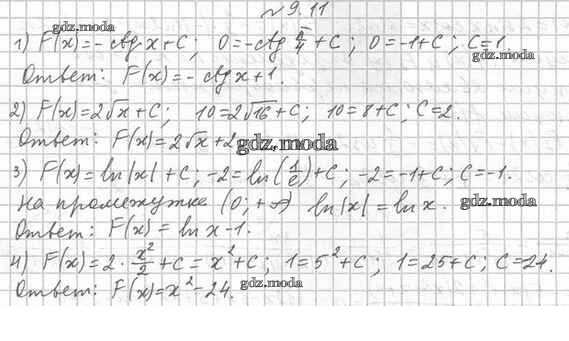 № 9.11
gdz.moda
1) F(x)=-ctg x+C; 0=-ctg π/4+C; 0=-1+C; C=1.
gdz.moda
Ответ: F(x)=-ctg x+1.
2) F(x)=2√x+C; 10=2√16+C; 10=8+C; C=2.
Ответ: F(x)=2√x+2
gdz.moda
3) F(x)=ln|x|+C; -2=ln(1/e)+C; -2=-1+C; C=-1.
На промежутке (0;+∞) ln|x|=ln x.
gdz.moda
Ответ: F(x)=ln x-1.
4) F(x)=2·x²/2+C=x²+C; 1=5²+C; 1=25+C; C=24.
Ответ: F(x)=x²-24.
gdz.moda